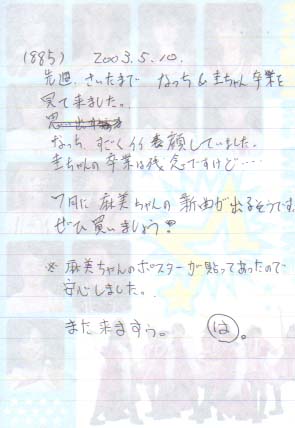 (885) 2003.5.10.
先週、さいたまで なっち&圭ちゃん卒業を
見て来ました。
なっち、すごくイイ表顔していました。
圭ちゃんの卒業は残念ですけど…
7月に 麻美ちゃんの 新曲が出るそうです
ぜひ買いましょう!
※麻美ちゃんのポスターが貼ってあったので
安心しました。
また来ますぅ。 は。